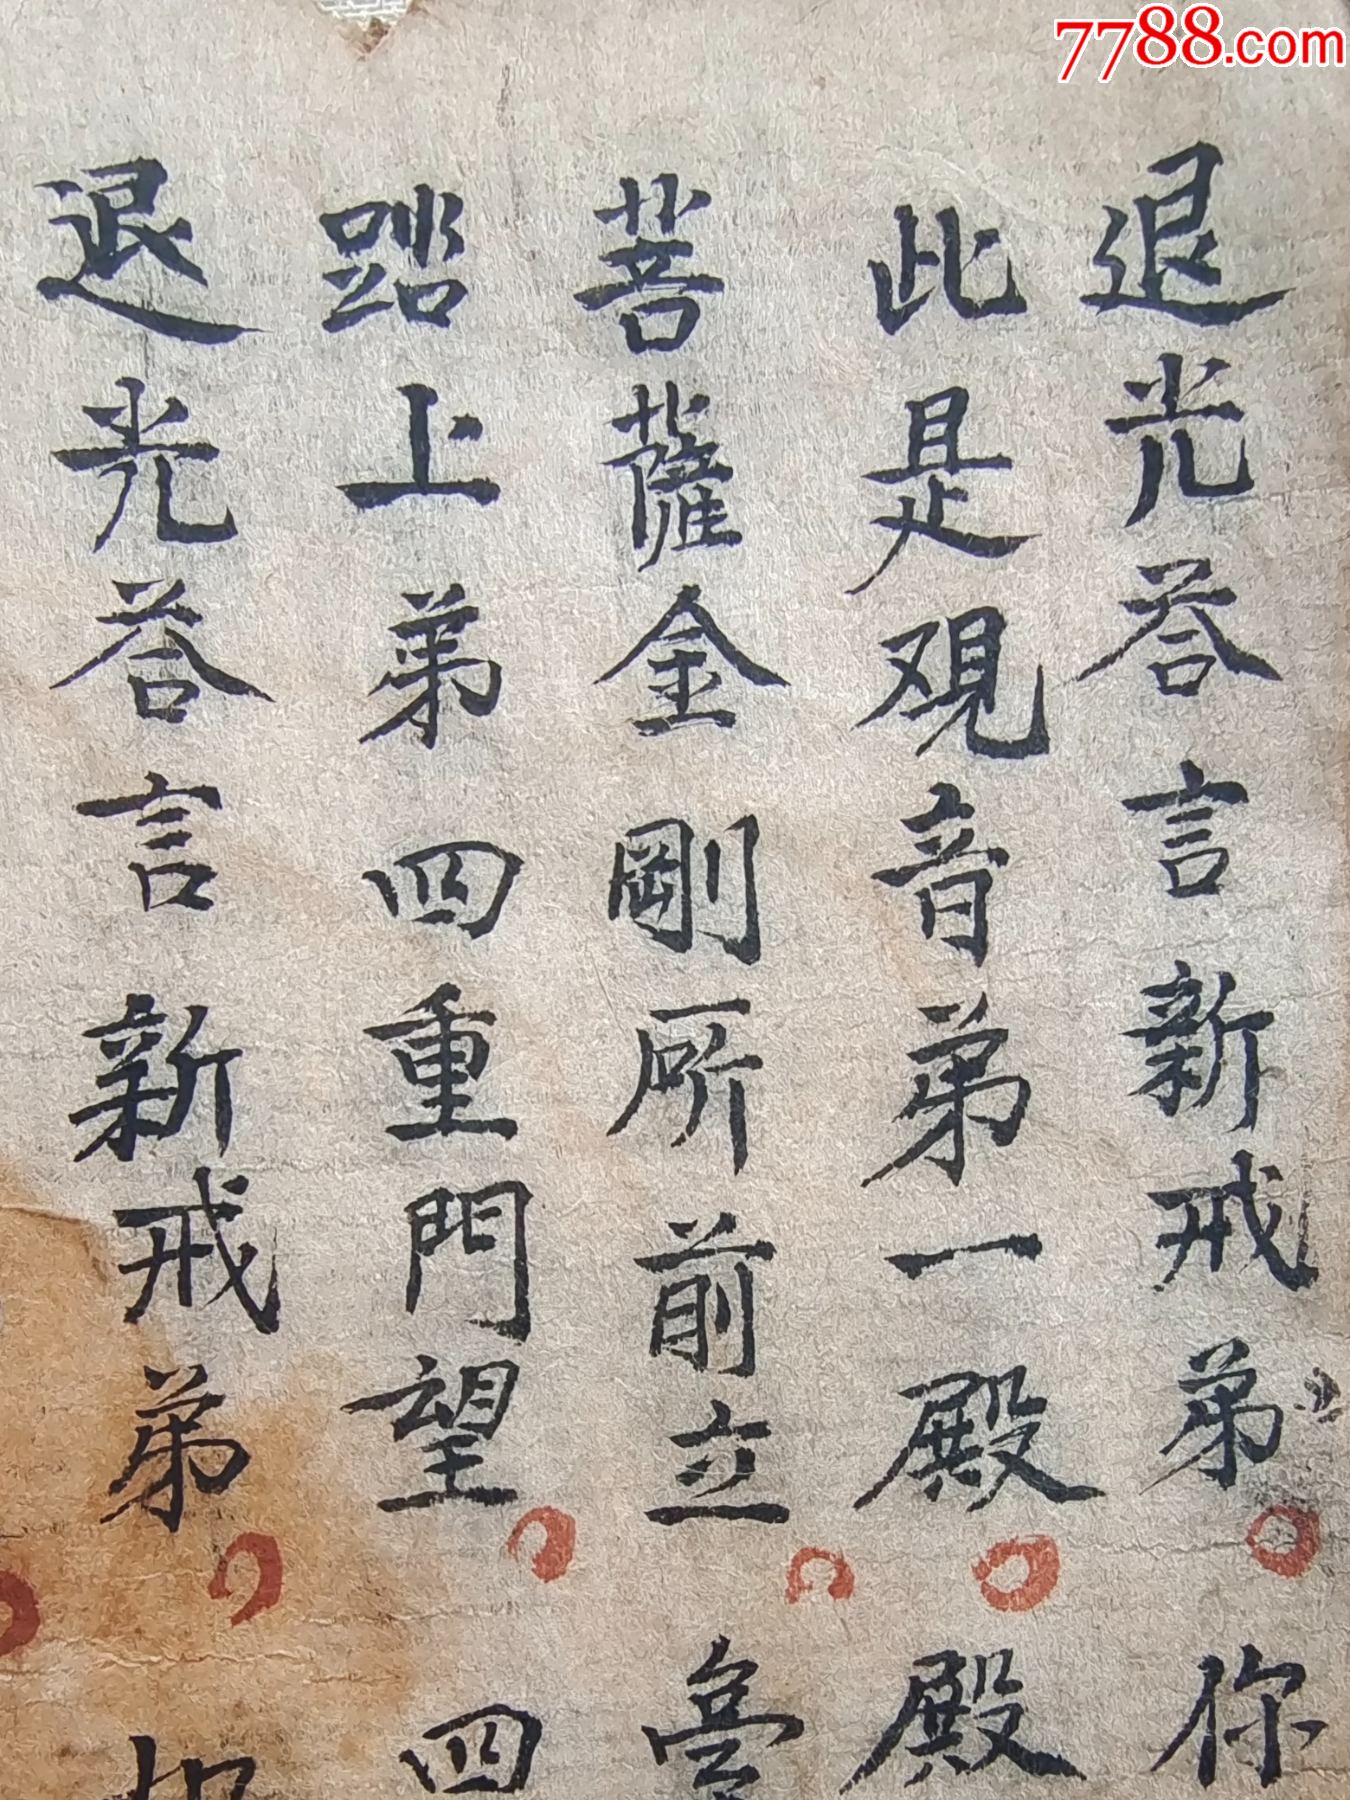 7788.com
退光荅言新戒弟 你
此是覌音弟一殿 殿
菩薩金剛所前立
踏上弟四重門望 四
退光荅言新戒弟